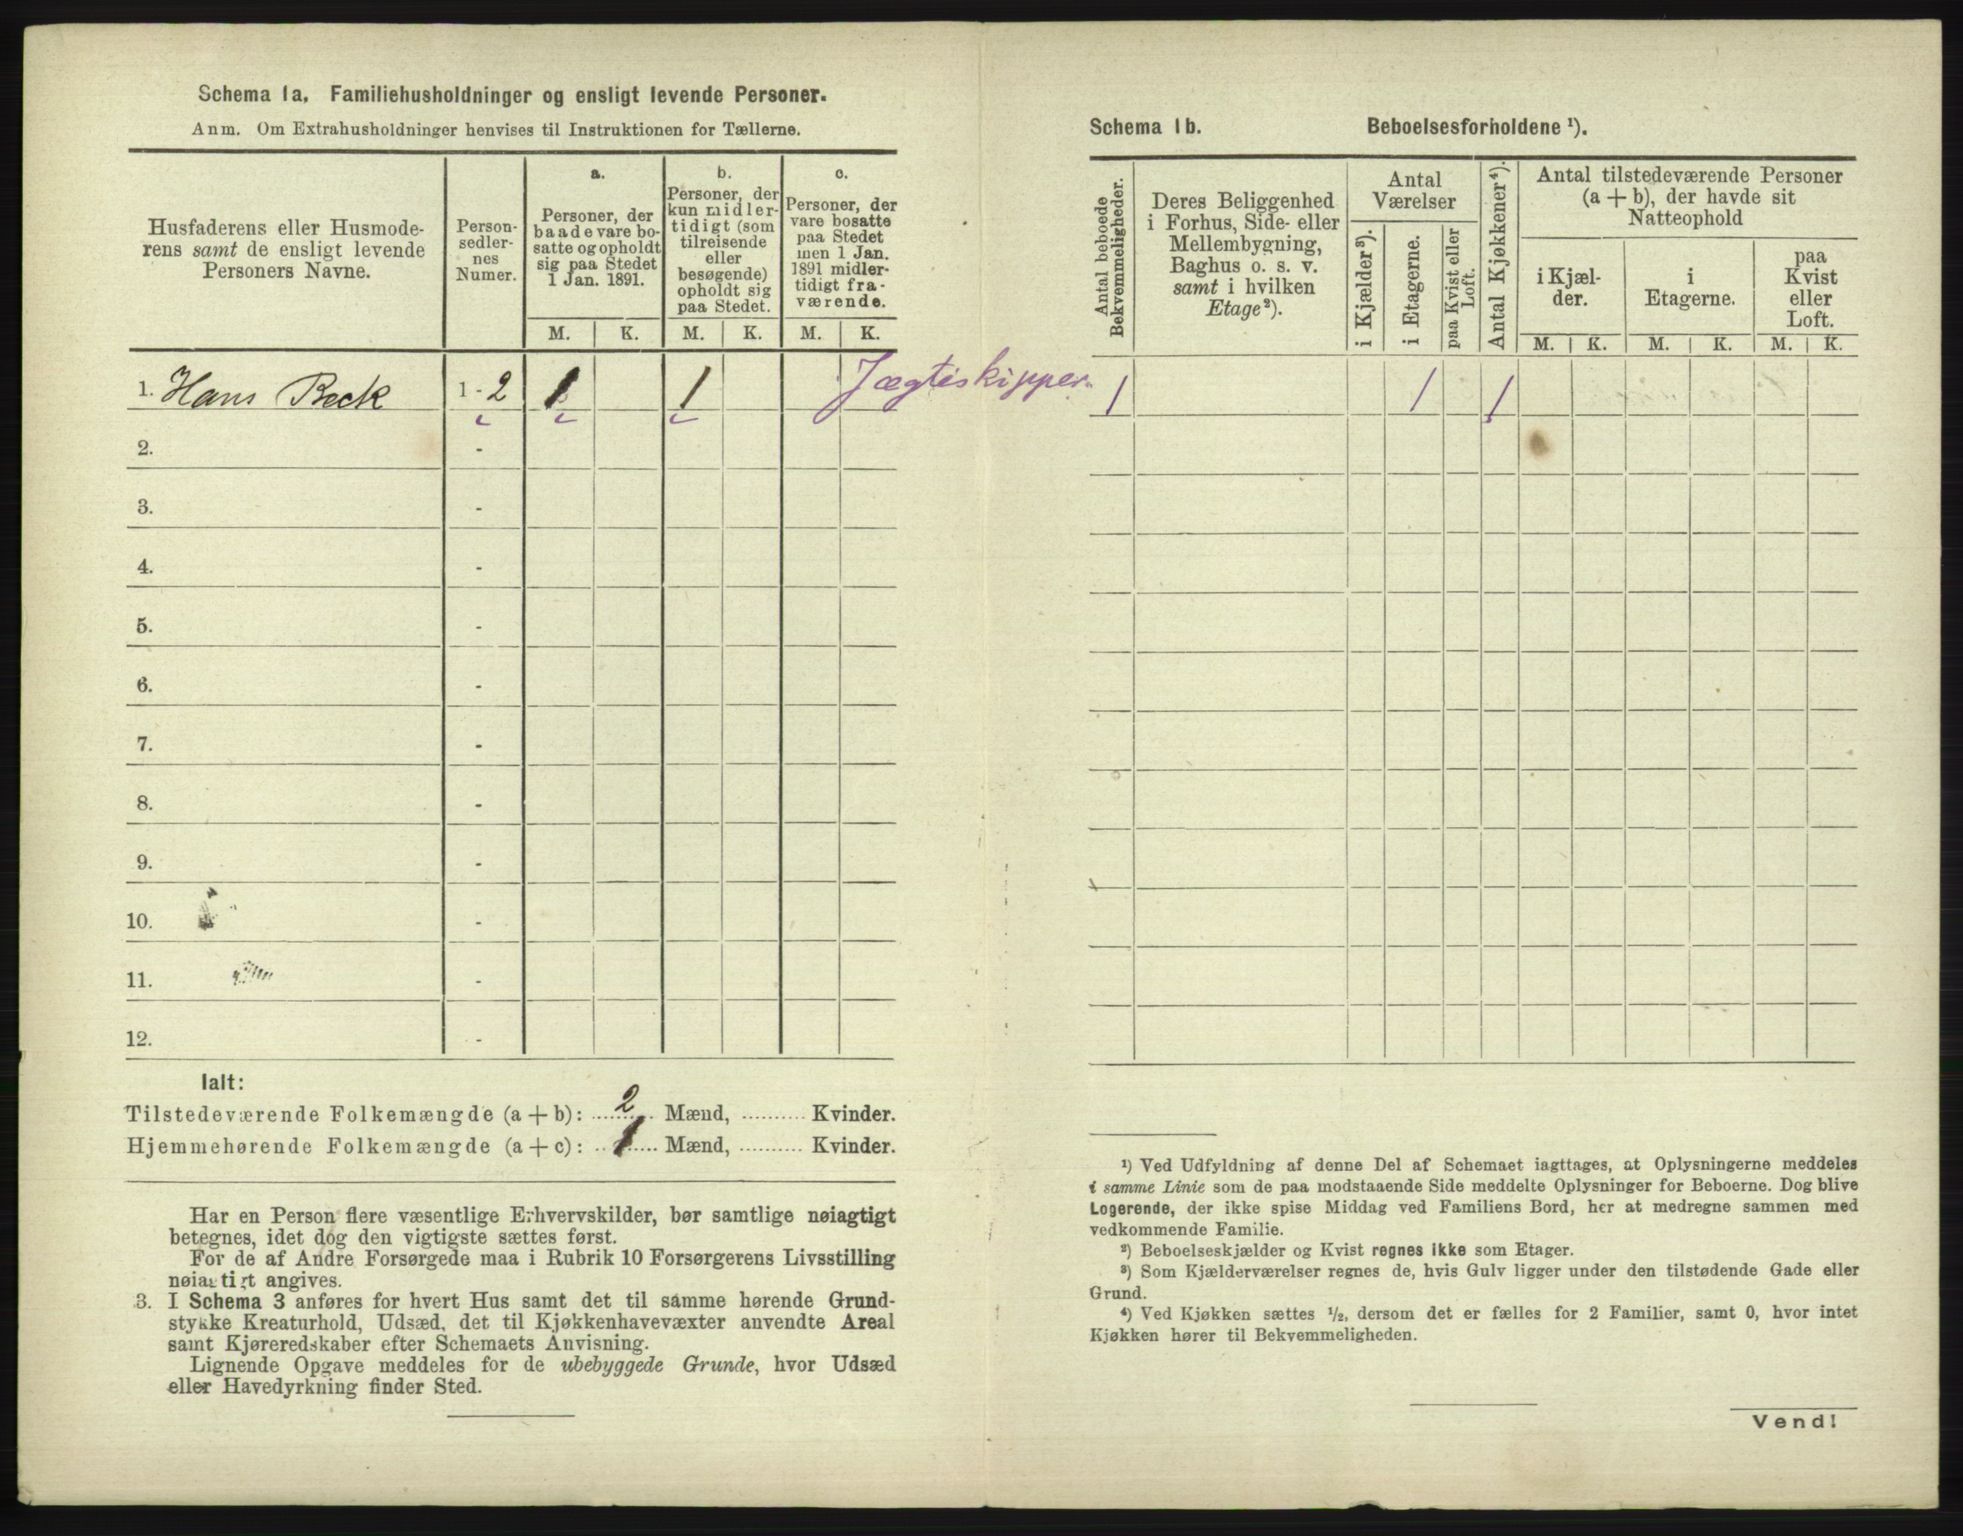 Schema 1a. Familiehusholdninger og ensligt levende Personer.
Anm. Om Extrahusholdninger henvises til Instruktionen for Tællerne.
Husfaderens eller Husmode-
rens samt de ensligt levende
Personers Navne.
Person-
sedler-
nes
Numer.
a.
Personer, der
baade vare bo-
satte og opholdt
sig paa Stedet
1 Jan. 1891.
b.
Personer, der
kun midler-
tidigt (som
tilreisende
eller
besøgende)
opholdt sig
paa Stedet.
c.
Personer, der
vare bosatte
paa Stedet
men 1 Jan.
1891 midler-
tidigt fra-
værende.
M. K. M. K. M. K.
1. Hans Beck 1 - 2 1 1 Jægteskipper.
2. -
3. -
4. -
5. -
6. -
7. -
8. -
9. -
10. -
11. -
12. -
Ialt:
Tilstedeværende Folkemængde (a + b): 2 Mænd, .......... Kvinder.
Hjemmehørende Folkemængde (a + c): 1 Mænd, .......... Kvinder.
Har en Person flere væsentlige Erhvervskilder, bør samtlige nøiagtigt
betegnes, idet dog den vigtigste sættes først.
For de af Andre Forsørgede maa i Rubrik 10 Forsørgerens Livsstilling
nøiagtigt angives.
3. I Schema 3 anføres for hvert Hus samt det til samme hørende Grund-
stykke Kreaturhold, Udsæd, det til Kjøkkenhavevæxter anvendte Areal
samt Kjøreredskaber efter Schemaets Anvisning.
Lignende Opgave meddeles for de ubebyggede Grunde, hvor Udsæd
eller Havedyrkning finder Sted.
Schema 1b. Beboelsesforholdene ¹).
Antal beboede
Bekvemmeligheder.
Deres Beliggenhed
i Forhus, Side- eller
Mellembygning,
Baghus o. s. v.
samt i hvilken
Etage²).
Antal
Værelser
i Kjælder³).
i Etagerne.
paa Kvist eller
Loft.
Antal Kjøkkener⁴).
Antal tilstedeværende Personer
(a + b), der havde sit
Natteophold
i Kjæl-
der.
i
Etagerne.
paa
Kvist
eller
Loft.
M. K. M. K. M. K.
1 1 1
¹) Ved Udfyldning af denne Del af Schemaet iagttages, at Oplysningerne meddeles
i samme Linie som de paa modstaaende Side meddelte Oplysninger for Beboerne. Dog blive
Logerende, der ikke spise Middag ved Familiens Bord, her at medregne sammen med
vedkommende Familie.
²) Beboelseskjælder og Kvist regnes ikke som Etager.
³) Som Kjælderværelser regnes de, hvis Gulv ligger under den tilstødende Gade eller
Grund.
⁴) Ved Kjøkken sættes ½, dersom det er fælles for 2 Familier, samt 0, hvor intet
Kjøkken hører til Bekvemmeligheden.
Vend!